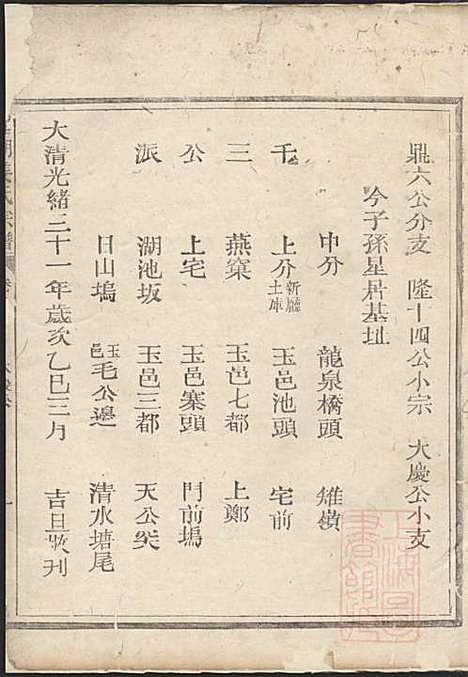 鼎六公分支 隆十四公小宗 大慶公小支
今子孫星居基址
中分 龍泉橋頭 雉嶺
千 上分新廳土庫 玉邑池頭 宅前
三 燕窠 玉邑七都 上鄭
公 上宅 玉邑寨頭 門前塢
派 湖池坂 玉邑三都 天公尖
日山塢 玉邑毛公邊 清水塘尾
大清光緒三十一年歲次乙巳三月 吉旦敬刊
氏宗譜 卷
上海圖書館藏